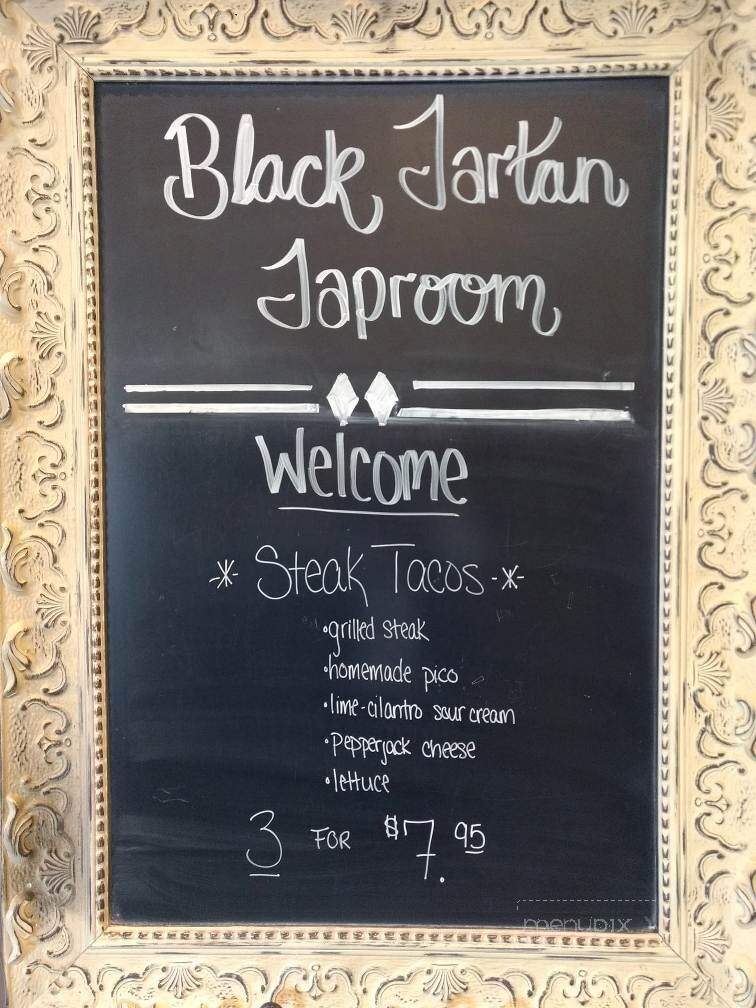 Black Tartan
Taproom
Welcome
-*- Steak Tacos -*-
•grilled steak
•homemade pico
•lime-cilantro sour cream
•Pepperjack cheese
•lettuce
3 FOR $7.95
menupix